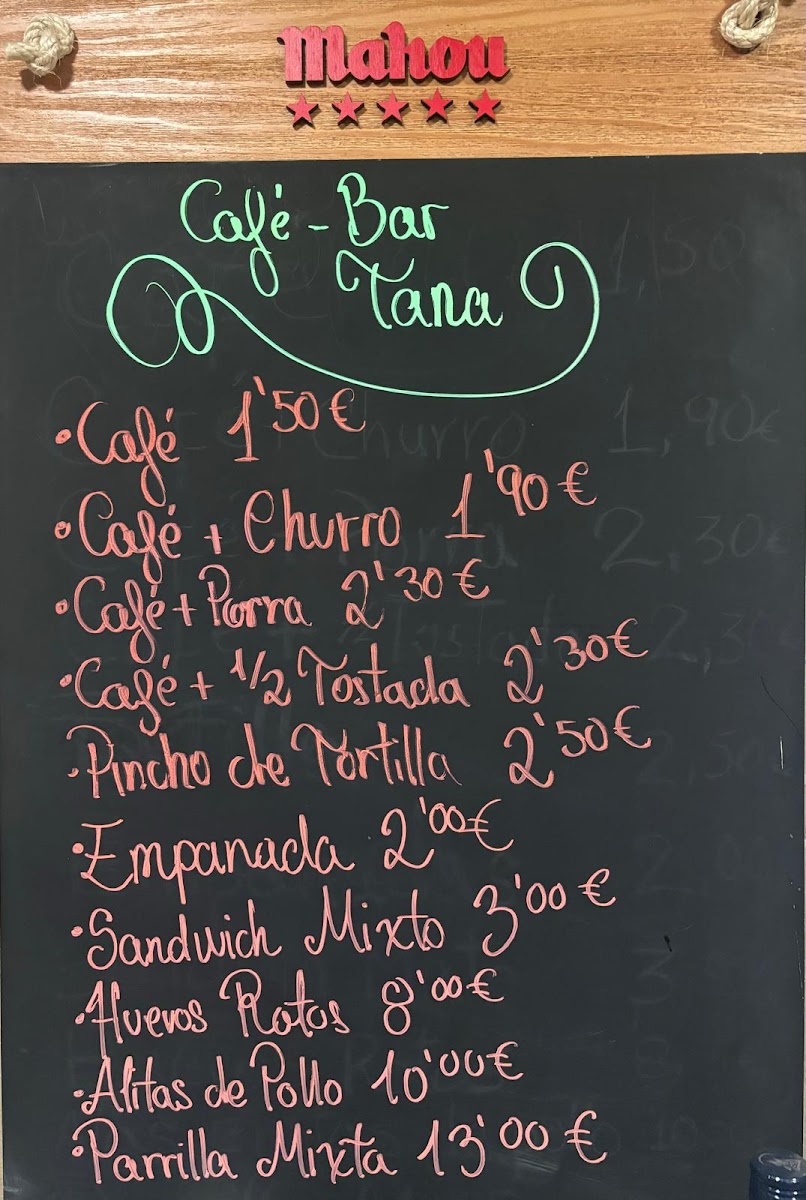 Mahou
Café - Bar
Tana
· Café 1'50€
· Café + Churro 1'90€
· Café + Porra 2'30€
· Café + 1/2 Tostada 2'30€
· Pincho de Tortilla 2'50€
· Empanada 2'00€
· Sandwich Mixto 3'00€
· Huevos Rotos 8'00€
· Alitas de Pollo 10'00€
· Parrilla Mixta 13'00€